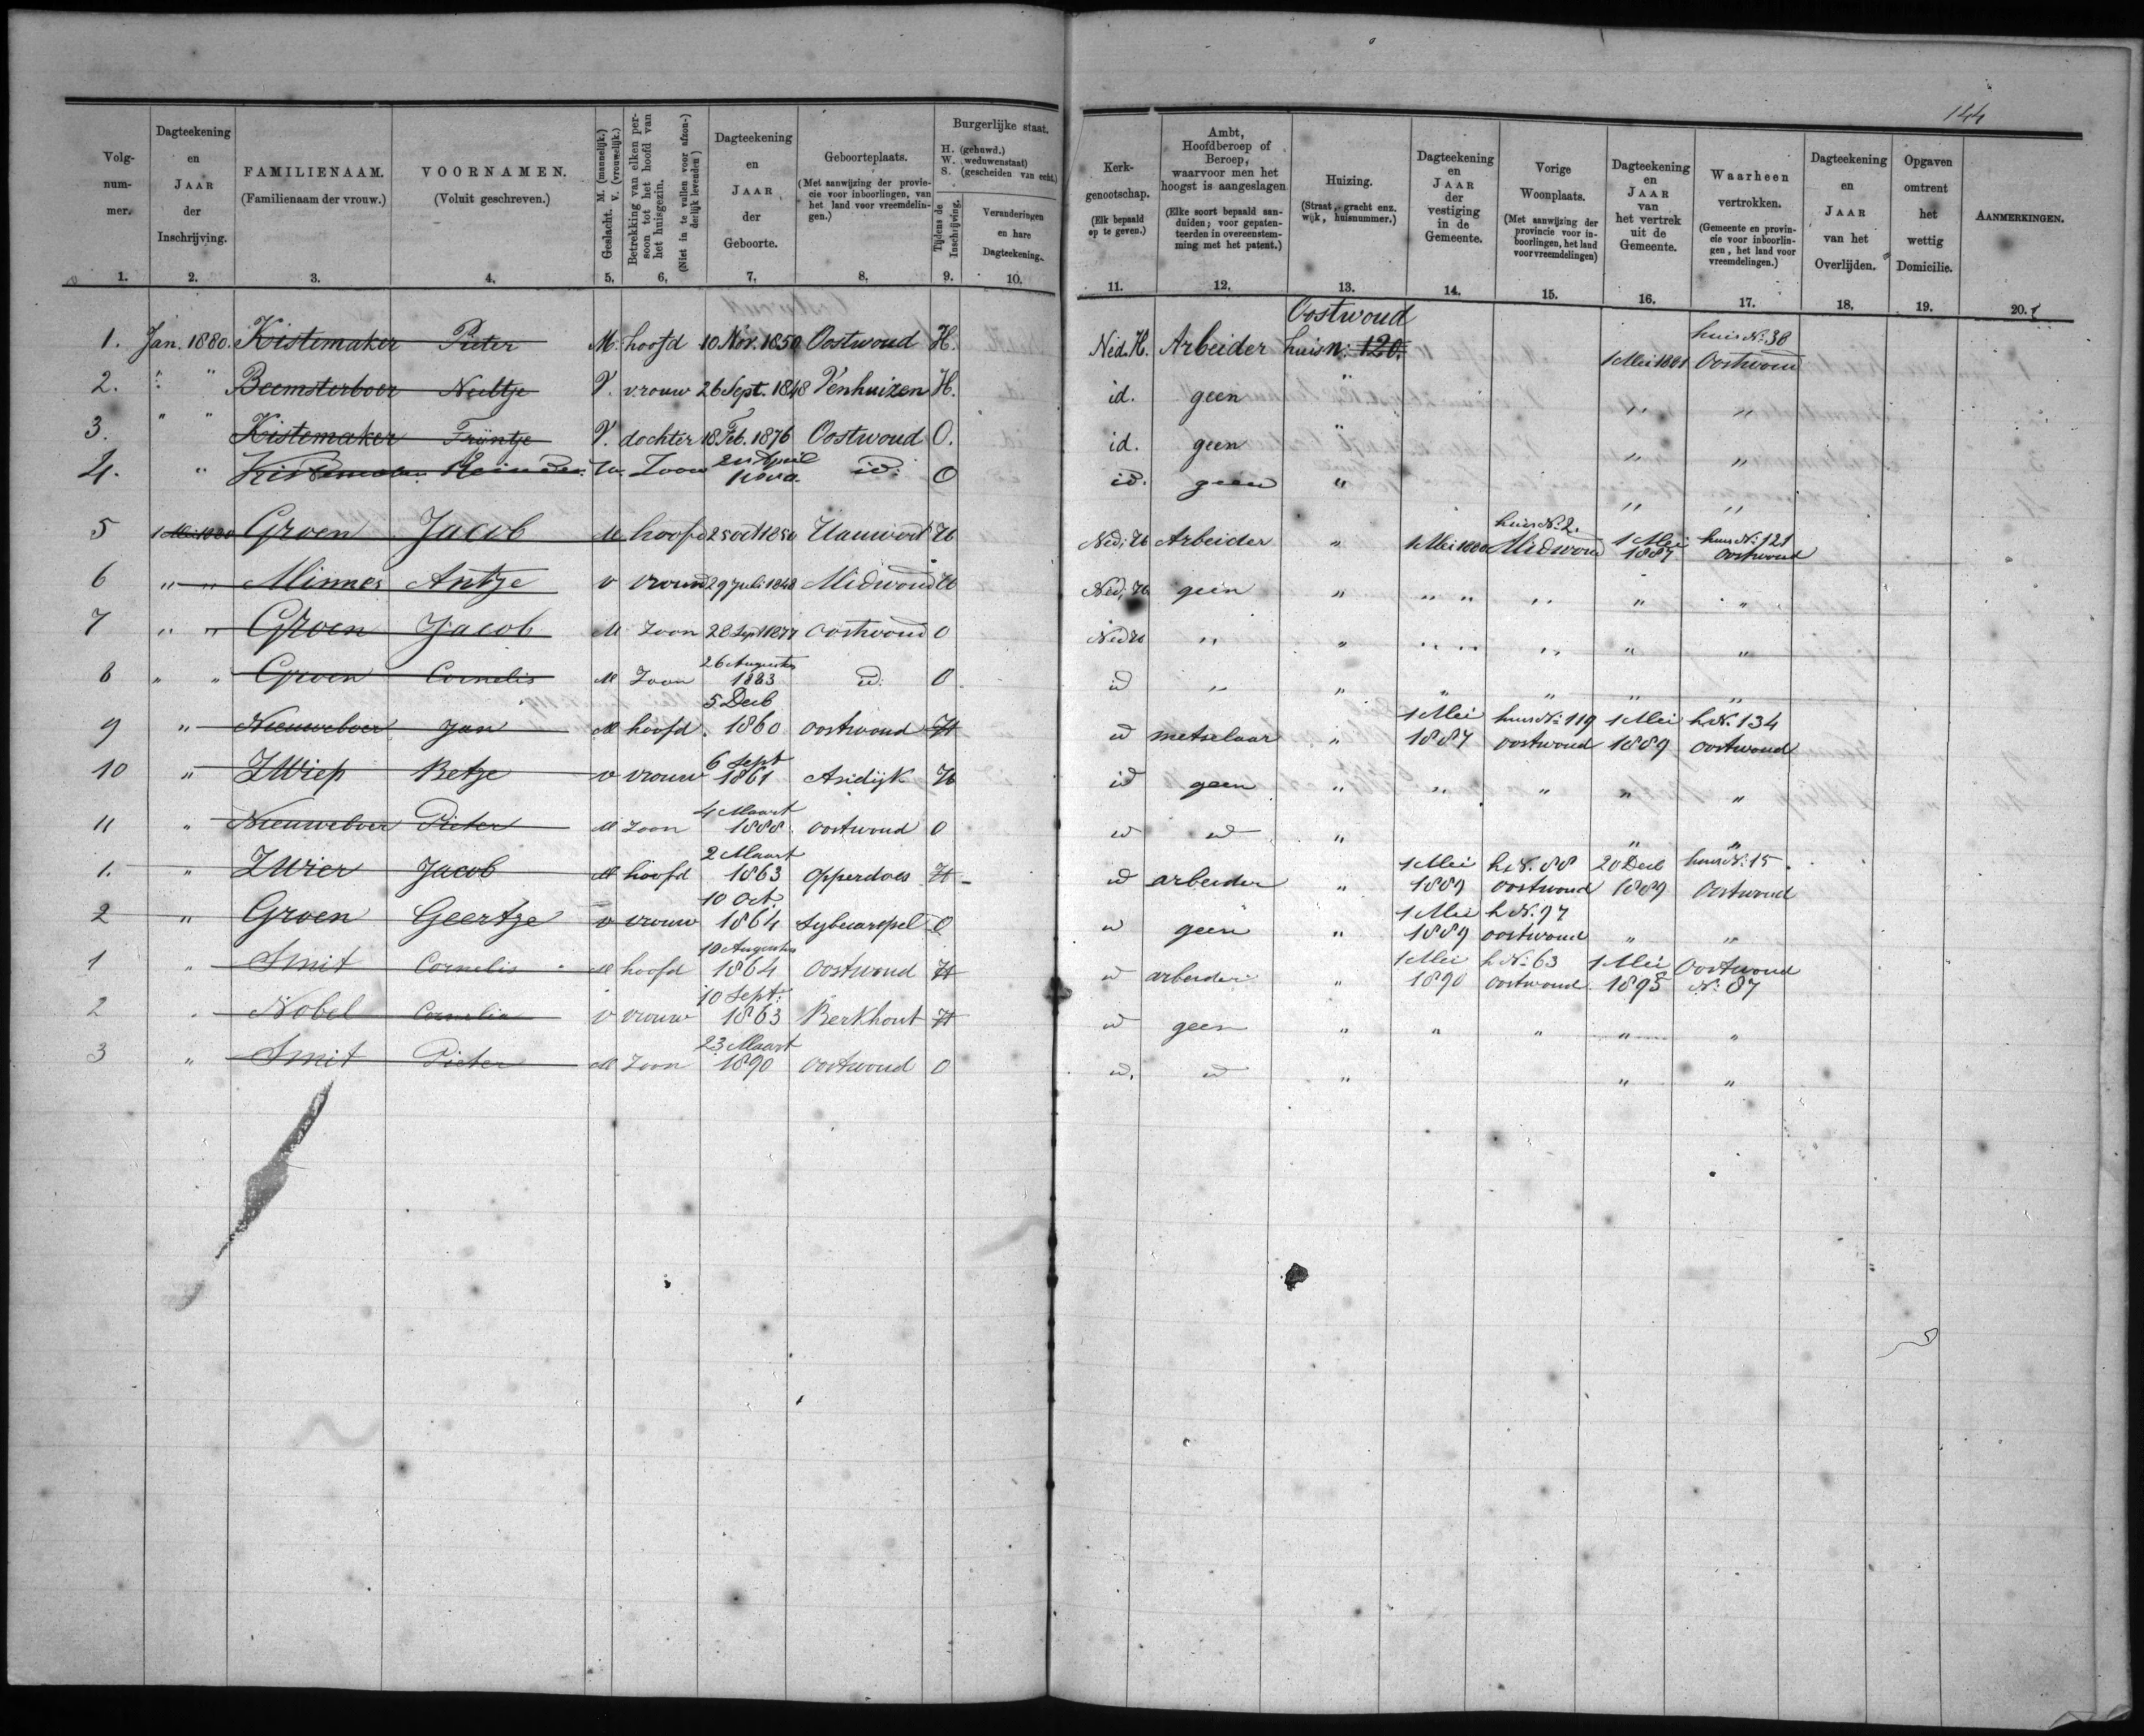 144
Volgnummer.
Dagteekening en JAAR der Inschrijving.
FAMILIENAAM. (Familienaam der vrouw.)
VOORNAMEN. (Voluit geschreven.)
Geslacht. M. (mannelijk.) V. (vrouwelijk.)
Betrekking van elken persoon tot het hoofd van het huisgezin. (Niet in te vullen voor afzonderlijk levenden)
Dagteekening en JAAR der Geboorte.
Geboorteplaats. (Met aanwijzing der provincie voor inboorlingen, van het land voor vreemdelingen.)
Burgerlijke staat. H. (gehuwd.) W. (weduwenstaat) S. (gescheiden van echt.)
Tijdens de Inschrijving.
Veranderingen en hare Dagteekening.
Kerkgenootschap. (Elk bepaald op te geven.)
Ambt, Hoofdberoep of Beroep, waarvoor men het hoogst is aangeslagen (Elke soort bepaald aanduiden; voor gepatenteerden in overeenstemming met het patent.)
Huizing. (Straat, gracht enz. wijk, huisnummer.)
Dagteekening en JAAR der vestiging in de Gemeente.
Vorige Woonplaats. (Met aanwijzing der provincie voor inboorlingen, het land voor vreemdelingen)
Dagteekening en JAAR van het vertrek uit de Gemeente.
Waarheen vertrokken. (Gemeente en provincie voor inboorlingen, het land voor vreemdelingen.)
Dagteekening en JAAR van het Overlijden.
Opgaven omtrent het wettig Domicilie.
AANMERKINGEN.
1. 2. 3. 4. 5. 6. 7. 8. 9. 10. 11. 12. 13. 14. 15. 16. 17. 18. 19. 20.
Oostwoud
1. Jan. 1880. Kistemaker Pieter M. hoofd 10 Nov. 1850 Oostwoud H. Ned. H. Arbeider huis n: 120. 1 Mei 1881 huis No. 38 Oostwoud
2. " " Beemsterboer Neeltje V. vrouw 26 Sept. 1848 Venhuizen H. id. geen " " "
3. " " Kistemaker Trijntje V. dochter 18 Feb. 1876 Oostwoud O. id. geen " " "
4. " Kistemaker Zoon April id. O id. geen " " "
5 1 Mei 1880 Groen Jacob M hoofd 25 Oct 1850 Hauwert H Ned; H Arbeider " 1 Mei 1880 huis No. 2. Midwoud 1 Mei 1887 huis No. 121 Oostwoud
6 " " Minnes Antje v vrouw 29 Juli 1848 Midwoud H Ned; H. geen " " " " " "
7 " " Groen Jacob M Zoon 28 Sept 1877 Oostwoud O Ned H " " " " " " "
8 " " Groen Cornelis M Zoon 26 Augustus 1883 id. O id " " " " " "
9 " Nieuweboer Jan M hoofd 5 Decb 1860 Oostwoud H id metselaar " 1 Mei 1887 huis No. 119 Oostwoud 1 Mei 1889 h No. 134 Oostwoud
10 " Zwiep Betje v vrouw 6 Sept 1861 H id geen " " " " "
11 " Nieuweboer Pieter M Zoon 4 Maart 1888 Oostwoud O id id " " "
1. " Zwier Jacob M hoofd 2 Maart 1863 Opperdoes H id arbeider " 1 Mei 1889 h No. 88 Oostwoud 20 Decb 1889 huis No. 15 Oostwoud
2 " Groen Geertje v vrouw 10 Oct. 1864 Sybecarspel O id geen " 1 Mei 1889 h No. 97 Oostwoud " "
1 " Smit Cornelis M hoofd 10 Augustus 1864 Oostwoud H id arbeider " 1 Mei 1890 h No. 63 Oostwoud 1 Mei 1895 Oostwoud No. 87
2 " Nobel Cornelia v vrouw 10 Sept: 1863 Berkhout H id geen " " " " "
3 " Smit Pieter M Zoon 23 Maart 1890 Oostwoud O id. id " " "